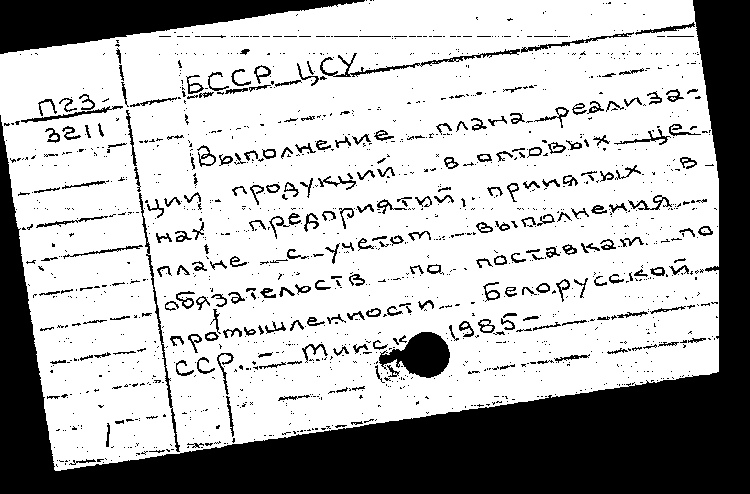 П23-
3211
БССР. ЦСУ.
Выполнение плана реализа-
ции продукций в оптовых це-
нах предприятий, принятых в
плане с учетом выполнения
обязательств по поставкам по
промышленности Белорусской
ССР. - Минск 1985-